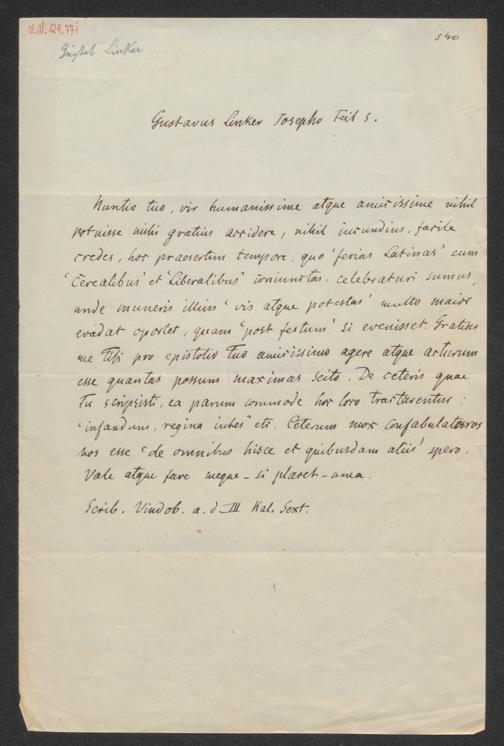 I.N. 129.771
540
Gustav Linker
Gustavus Linker Josepho Feil s.
Nuntio tuo, vir humanissime atque amicissime nihil
potuisse mihi gratius accidere, nihil iucundius, facile
credes, hoc praesertim tempore, quo 'ferias Latinas' cum
'Cerealibus' et 'Liberalibus' coniunctas celebraturi sumus,
unde muneris illius 'vis atque potestas' multo maior
evadat oportet, quam 'post festum' si evenisset. Gratias
me Tibi pro epistolio Tuo amicissimo agere atque acturum
esse quantas possum maximas scito. De ceteris quae
Tu scripsisti, ea parum commode hoc loco tractarentur:
'infandum, regina iubes' etc. Ceterum mox confabulaturos
nos esse 'de omnibus hisce et quibusdam aliis' spero.
Vale atque fave meque – si placet – ama.
Scrib. Vindob. a. d. III Kal. Sext.